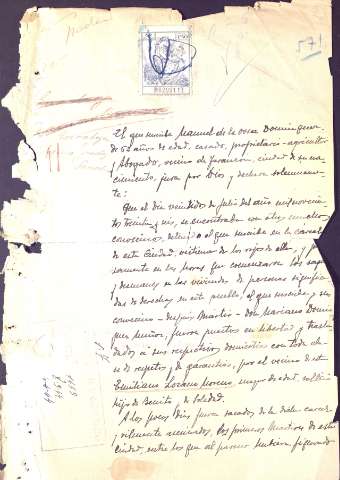 571
El que suscribe Manuel de la Ossa Dominguez
de 52 años de edad, casado, propietario-agricultor
y Abogado, vecino de Tarancon, ciudad de su na-
cimiento, jura por Dios y declara solemnemen-
te:
Que el dia veintidos de julio del año mil novecientos
treinta y seis, se encontraba con otros muchos
convecinos, detenido el que suscribe en la carcel
de esta Ciudad, victima de los rojos de ella, y
en las horas que comenzaron los
y desmanes en las viviendas de personas significa-
das de derechas en este pueblo, el que suscribe y su
convecino - despues Martir - don Mariano Domin-
guez Muñoz, fueron puestos en libertad y trasla-
dados a sus respectivos domicilios con toda cla-
se de respetos y de garantias, por el vecino de esta
Emiliano Lozano Moreno, mayor de edad, soltero
hijo de Benito y de Soledad.
A los pocos dias, fueron sacados de la dicha carcel
y vilmente asesinados, los primeros Martires de esta
ciudad, entre los que al parecer tambien, figurando